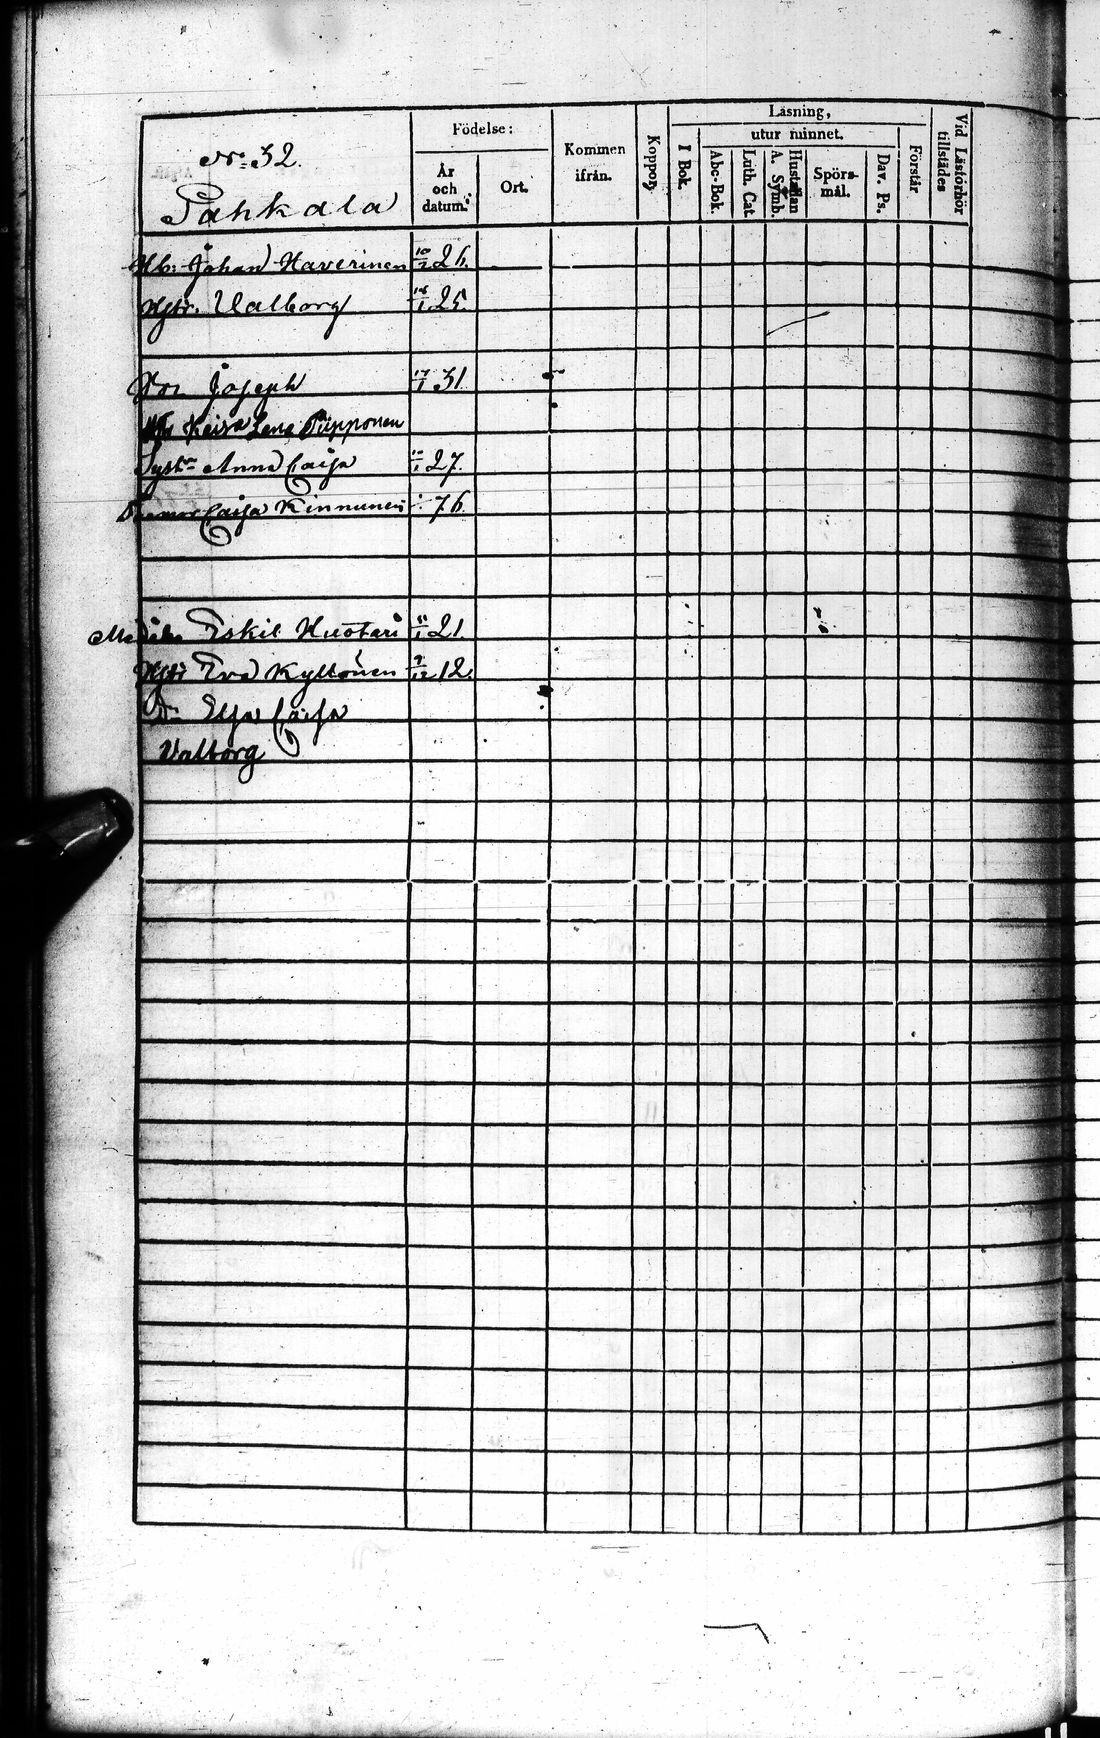 No 32.
Pahkala
Födelse:
År och datum.
Ort.
Kommen ifrån.
Koppor.
Läsning,
I Bok.
utur minnet.
Abc-Bok.
Luth. Cat.
Hustaflan A. Symb.
Spörsmål.
Dav. Ps.
Förstår
Vid Läsförhör tillstädes
Hb: Johan Haverinen 10/2 26.
Hstr. Valborg 25.
Bro Joseph 17/1 31.
Hu Kaisa Lena Piipponen
Systr Anna Caisa 27.
Caisa Kinnunen 76.
Eskil Huotari 21.
Hstr Eva Kyllönen 9/12 12.
Dr Elsa Caisa
Valborg